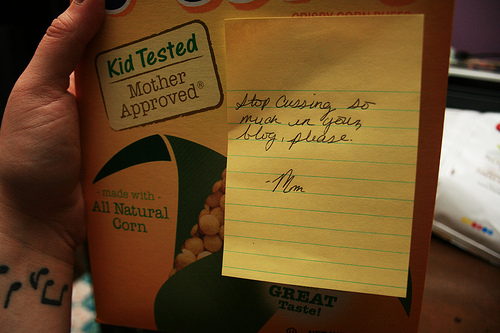 CRISPY CORN PUFFS
Kid Tested
Mother
Approved®
Stop Cussing so
much in your
blog, please.
-Mom
- made with -
All Natural
Corn
GREAT
Taste!